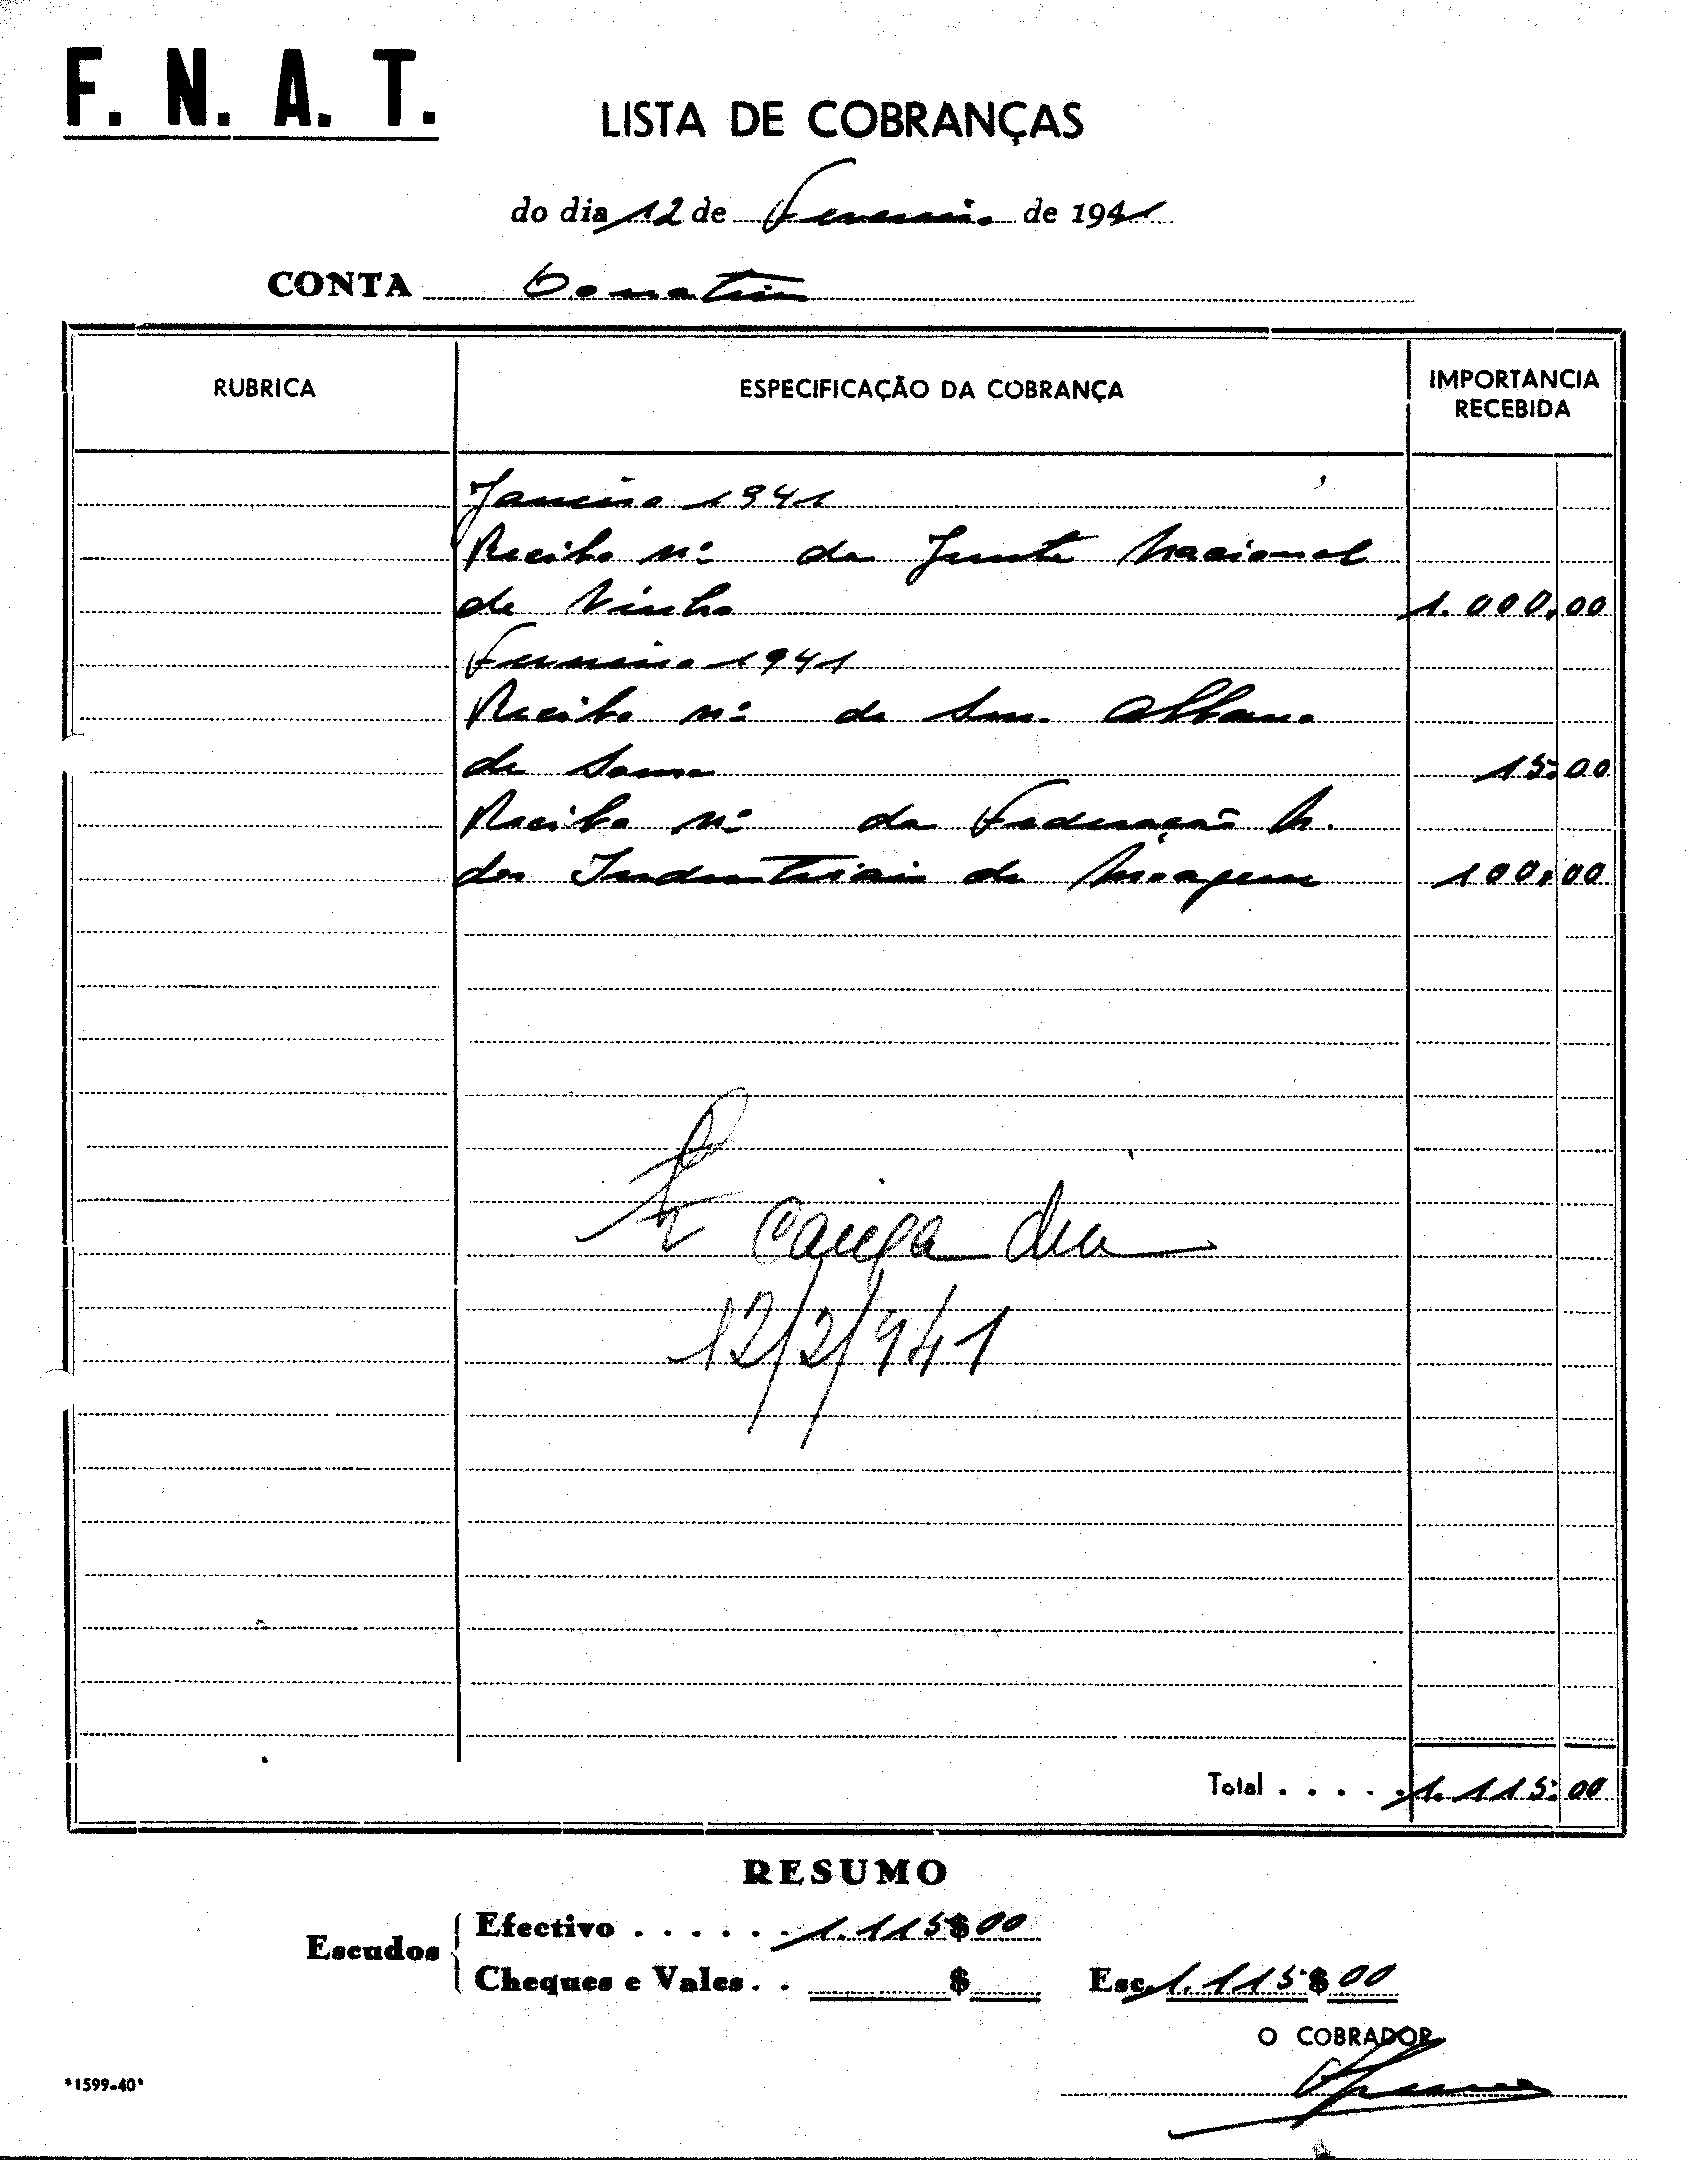 F. N. A. T.
LISTA DE COBRANÇAS
do dia 12 de Fevereiro de 1941
CONTA
RUBRICA ESPECIFICAÇÃO DA COBRANÇA IMPORTANCIA RECEBIDA
Janeiro 1941
Recibo nº da Junta Nacional
do Vinho 1.000,00
Fevereiro 1941
Recibo nº de Albano
de Sousa 15:00
Recibo nº da Federação N.
dos Industriais de Moagem 100,00
caixa dia
12/2/941
Total . . . . . 1.115:00
RESUMO
Escudos
Efectivo . . . . . . 1.115$00
Cheques e Vales . . $
Esc. 1.115$00
O COBRADOR
*1599-40*